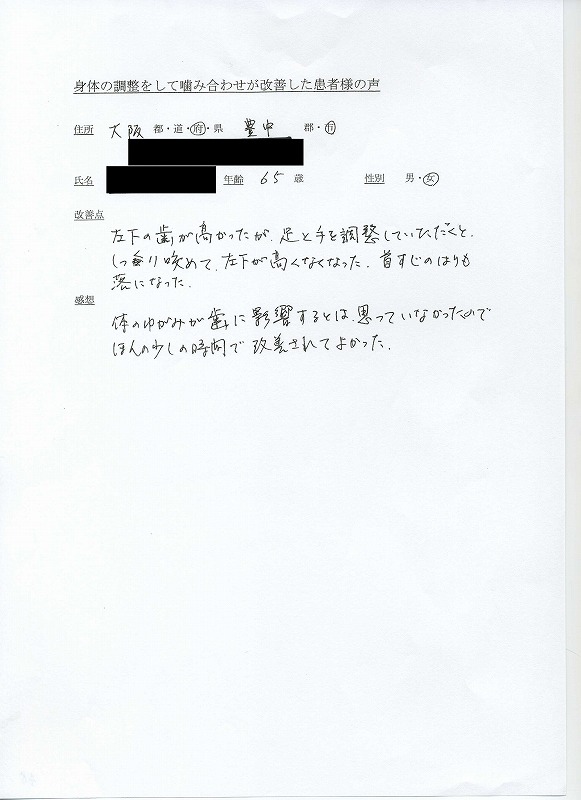 身体の調整をして噛み合わせが改善した患者様の声
住所 大阪 都・道・府・県 豊中 郡・市
氏名 年齢 65 歳 性別 男・女
改善点
左下の歯が高かったが、足と手を調整していただくと、
しっかり咬めて、左下が高くなくなった。首すじのはりも
楽になった。
感想
体のゆがみが歯に影響するとは、思っていなかったので
ほんの少しの時間で改善されてよかった。